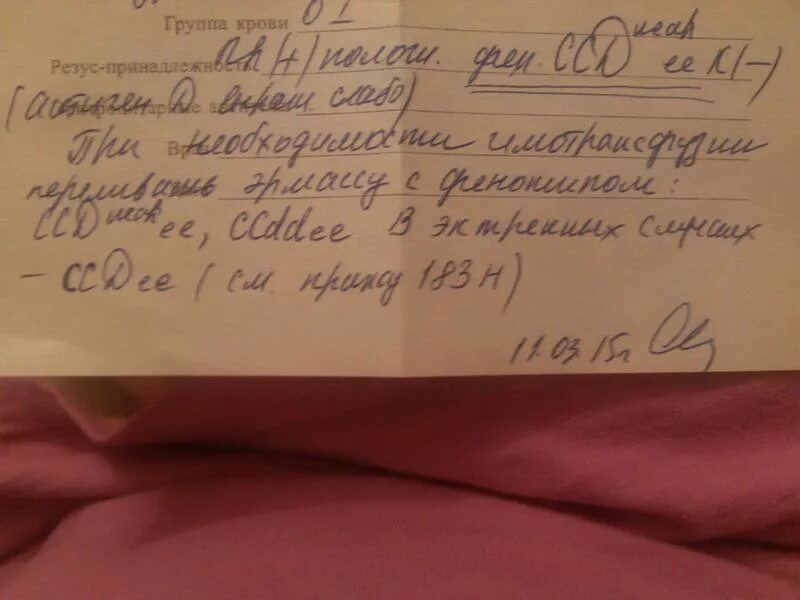 Группа крови O I
Резус-принадлежность Rh (+) полож. фен. CCDweak ee K(-)
(антиген D выраж. слабо)
При необходимости гемотрансфузии
переливать эрмассу с фенотипом:
CCDweak ee, CCddee В экстренных случаях
– CCDee (см. приказ 183Н)
11.03.15г